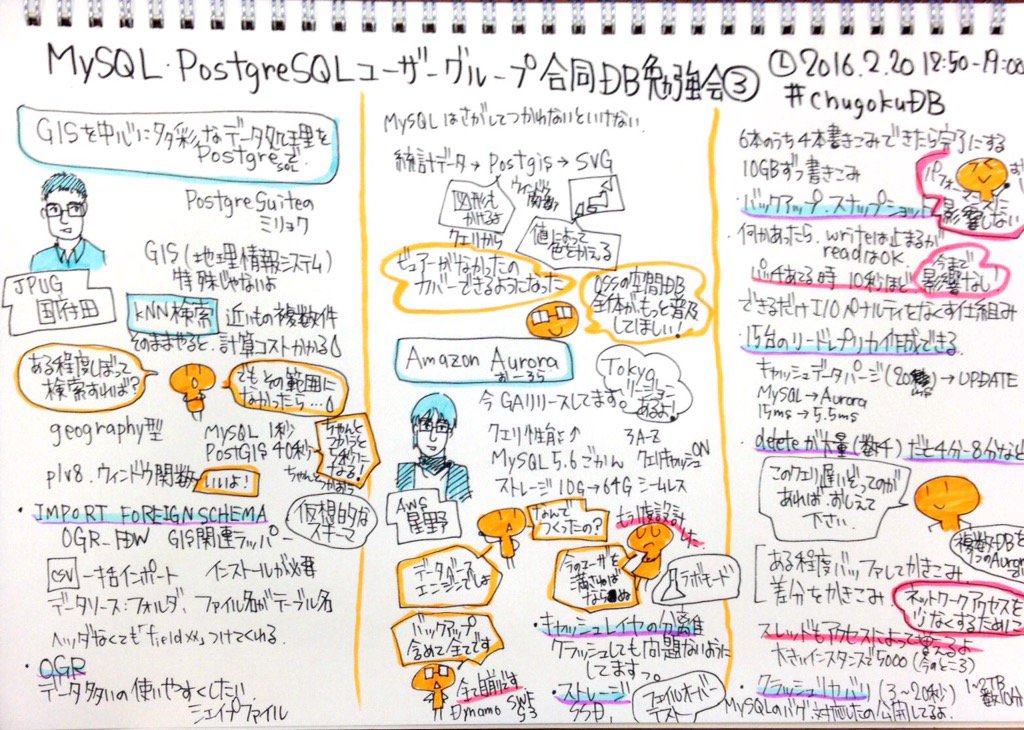 MySQL・PostgreSQLユーザーグループ合同DB勉強会③
2016.2.20 12:50-19:00
#chugokuDB
GISを中心に多彩なデータ処理を
PostgreSQLで。
PostgreSuiteの
ミリョク
JPUG
国府田
GIS(地理情報システム)
特殊じゃないよ
kNN検索 近いもの複数件
そのままやると、計算コストかかる
ある程度しぼって
検索すれば?
でもその範囲に
なかったら…
geography型
MySQL 1秒
PostGIS 40秒
ちゃんと
つかうと
になる!
plv8、ウィンドウ関数
いいよ!
・IMPORT FOREIGN SCHEMA
仮想的な
スキーマ
OGR_FDW GIS関連ラッパー
CSV 一括インポート インストールが必要
データソース:フォルダ、ファイル名がテーブル名
ヘッダなくても「field xx」つけてくれる。
・OGR
データ多いの使いやすくしたい
シェイプファイル
MySQLはさがしてつかわないといけない
統計データ→Postgis→SVG
図形も
かけるよ
クエリから
ウィンドウ
関数
値によって
色をかえる
ビューアーがなかったの
カバーできるようになった
OSSの空間DB
全体がもっと普及
してほしい!
Amazon Aurora
おーろら
Tokyo
リージョン
あるよ!
今GAリリースしてます。
AWS
星野
クエリ性能↑ 3AZ
MySQL5.6ごかん クエリキャッシュON
ストレージ10G→64G シームレス
なんで
つくったの?
もう1度設計した
データベース
エンジンでしょ
今のユーザを
満さなければ
ならぬ
ラボモード
バックアップ
含めて全てです
・キャッシュレイヤの分離
クラッシュしても問題ないように
してます。
全て崩す
Dynamo SWF
S3
・ストレージ
SSD、
フェイルオーバー
テスト
6本のうち4本書きこみできたら完了にする
10GBずつ書きこみ
・バックアップ・スナップショット
パフォーマンスに
影響しない
・何かあったら、writeは止まるが
readはOK。
パッチあてる時 10秒ほど
今まで
影響なし!
できるだけI/Oペナルティをなくす仕組み
・15台のリードレプリカ作成できる。
キャッシュデータページ → UPDATE
MySQL→Aurora
15ms→5.5ms
・deleteが大量(数千)だと4分-8分など
このクエリ遅いぞってのが
あれば、おしえて
下さい。
複数DBを
1つのAurora
ある程度バッファしてかきこみ
差分をかきこみ
ネットワークアクセスを
少なくするために
スレッドもアクセスによって変えるよ
大きいインスタンスで5000(今のところ)
・クラッシュリカバリ(3~20秒) 1~2TB
数10分
MySQLのバグ対応したの公開してるよ。